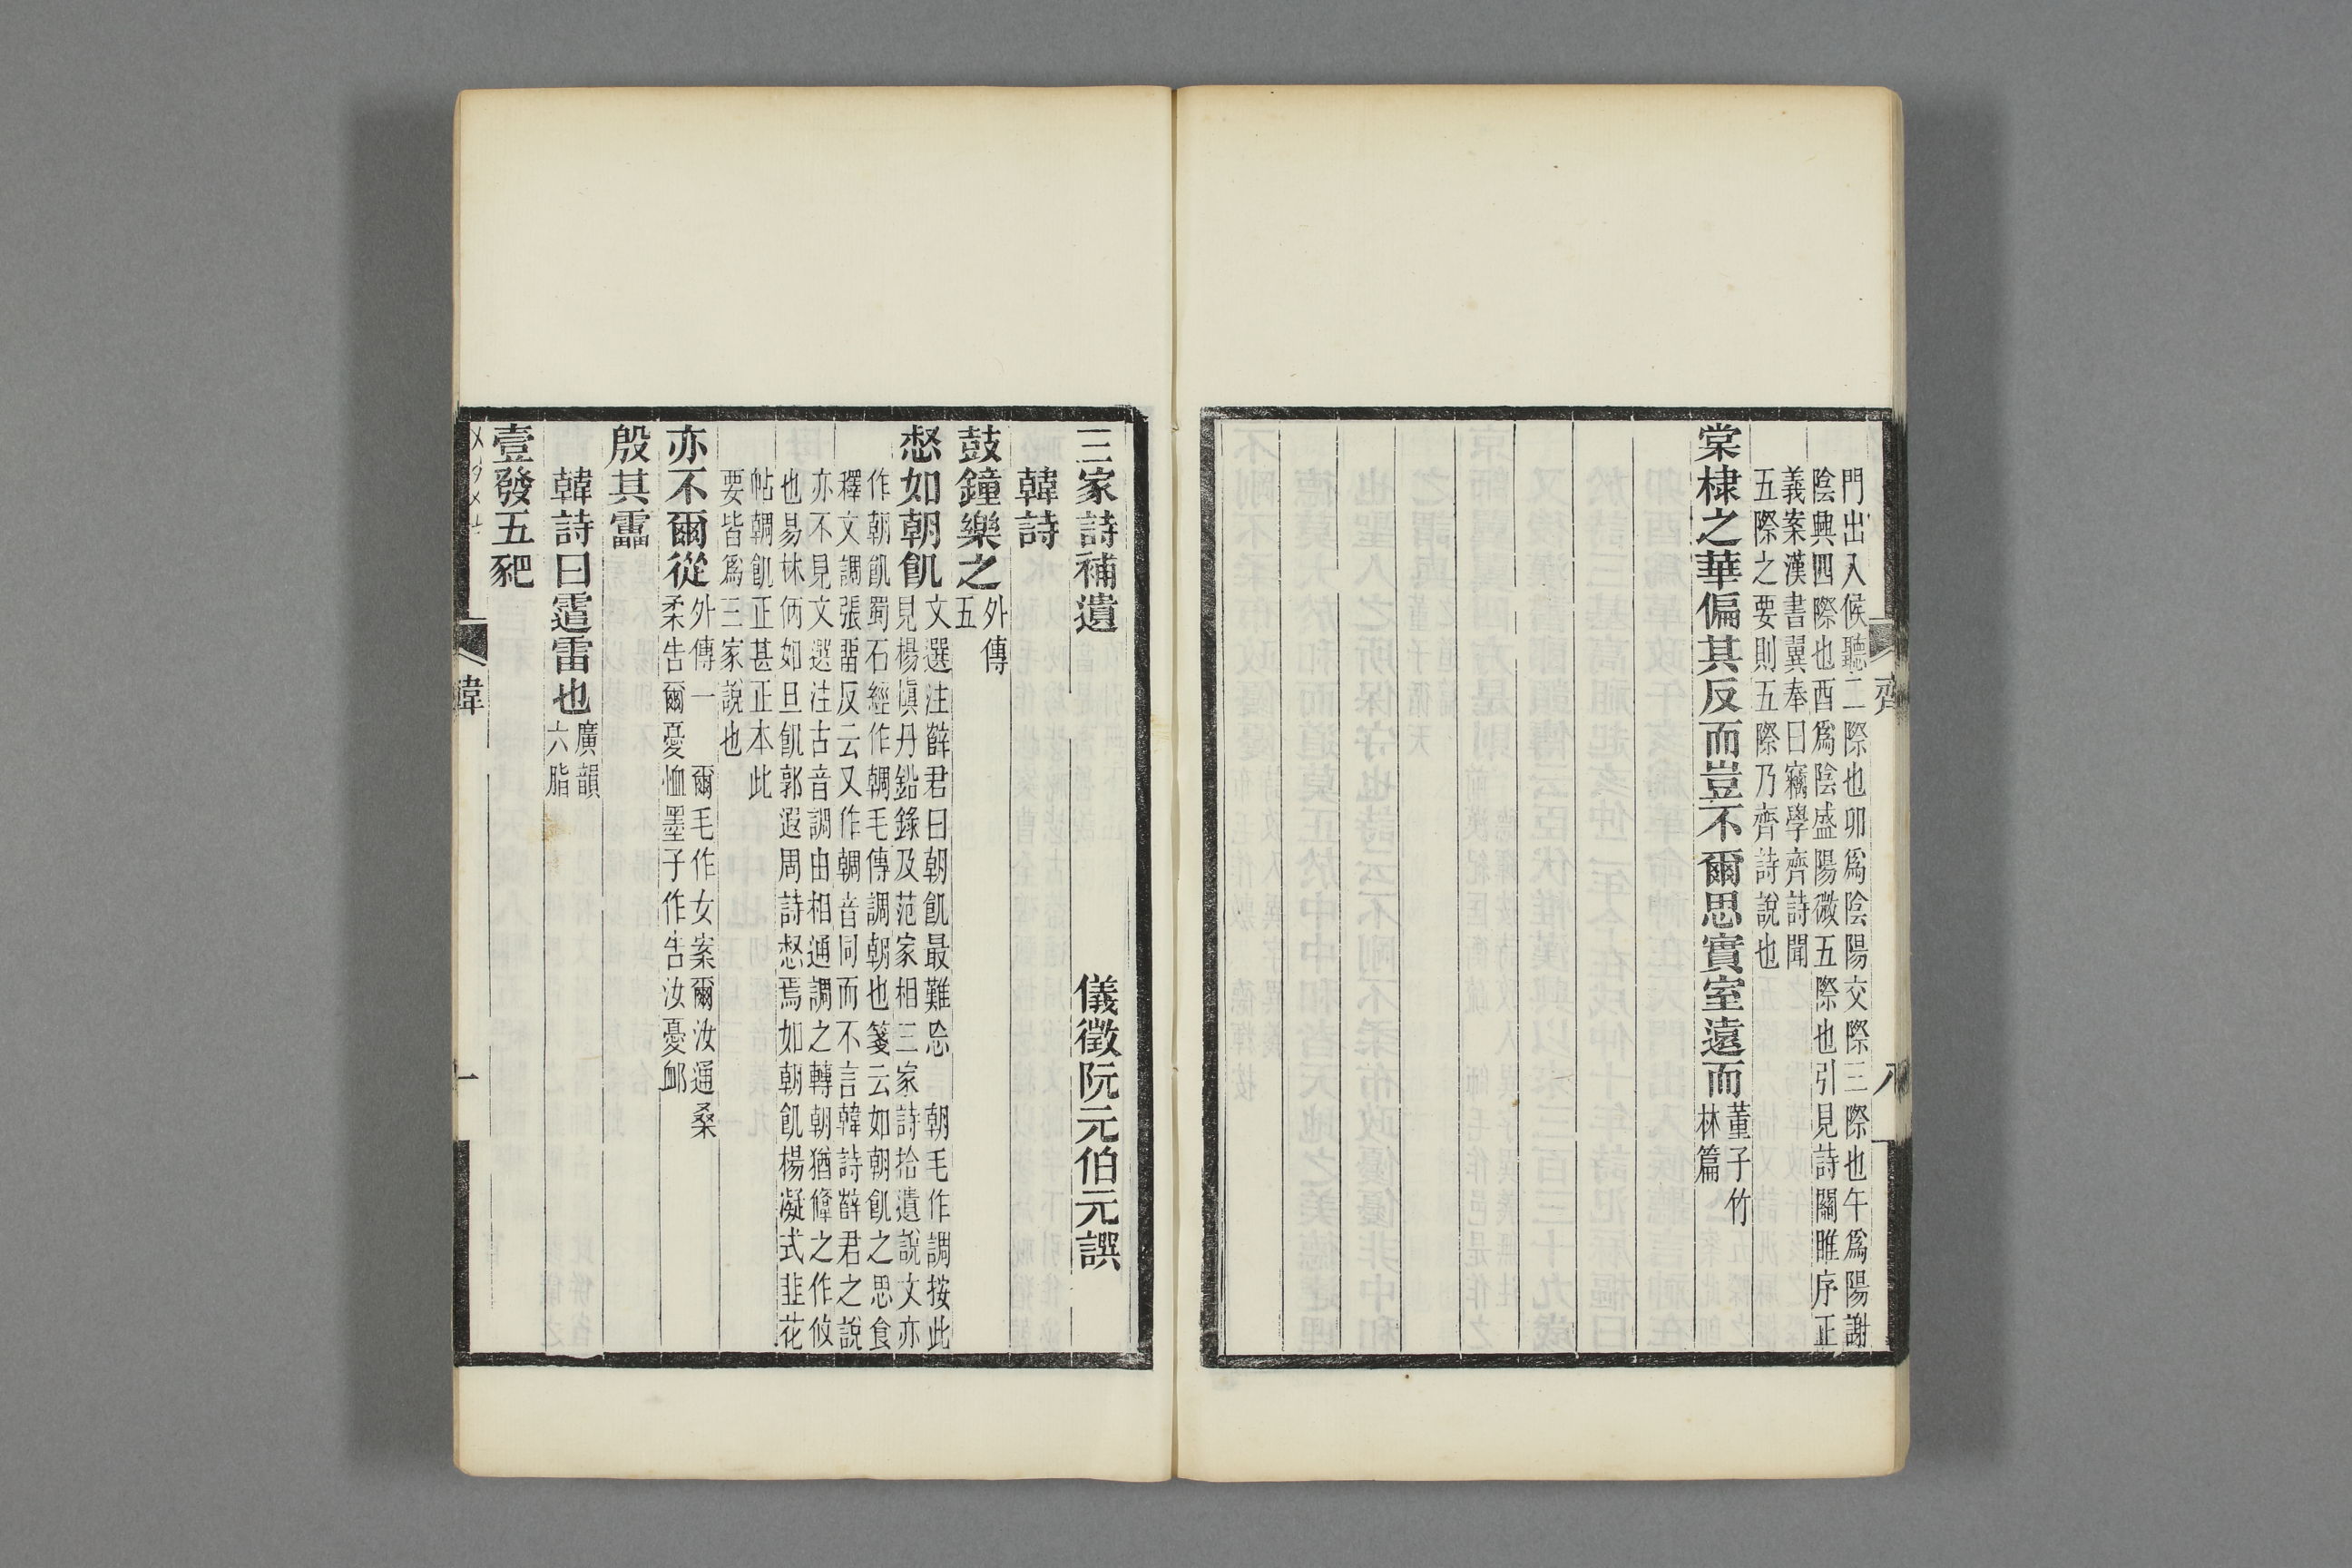 門出入候聽二際也卯爲陰陽交際三際也午爲陽謝
陰興四際也酉爲陰盛陽微五際也引見詩關雎序正
義案漢書翼奉曰竊學齊詩聞
五際之要則五際乃齊詩說也
棠棣之華偏其反而豈不爾思實室遠而
董子竹
林篇
齊
八
三家詩補遺
儀徵阮元伯元譔
韓詩
鼓鐘樂之
外傳
五
惄如朝飢
文選注薛君曰朝飢最難忍 朝毛作調按此
見楊愼丹鉛錄及范家相三家詩拾遺說文亦
作朝飢蜀石經作輖毛傳調朝也箋云如朝飢之思食
釋文調張留反云又作輖音同而不言韓詩薛君之說
亦不見文選注古音調由相通調之轉朝猶鞗之作攸
也易林俩如旦飢郭遐周詩惄焉如朝飢楊凝式韭花
帖輖飢正甚正本此
要皆爲三家說也
亦不爾從
外傳一 爾毛作女案爾汝通桑
柔告爾憂恤墨子作告汝憂卹
殷其靁
韓詩曰霱雷也
廣韻
六脂
壹發五豝
韓
一